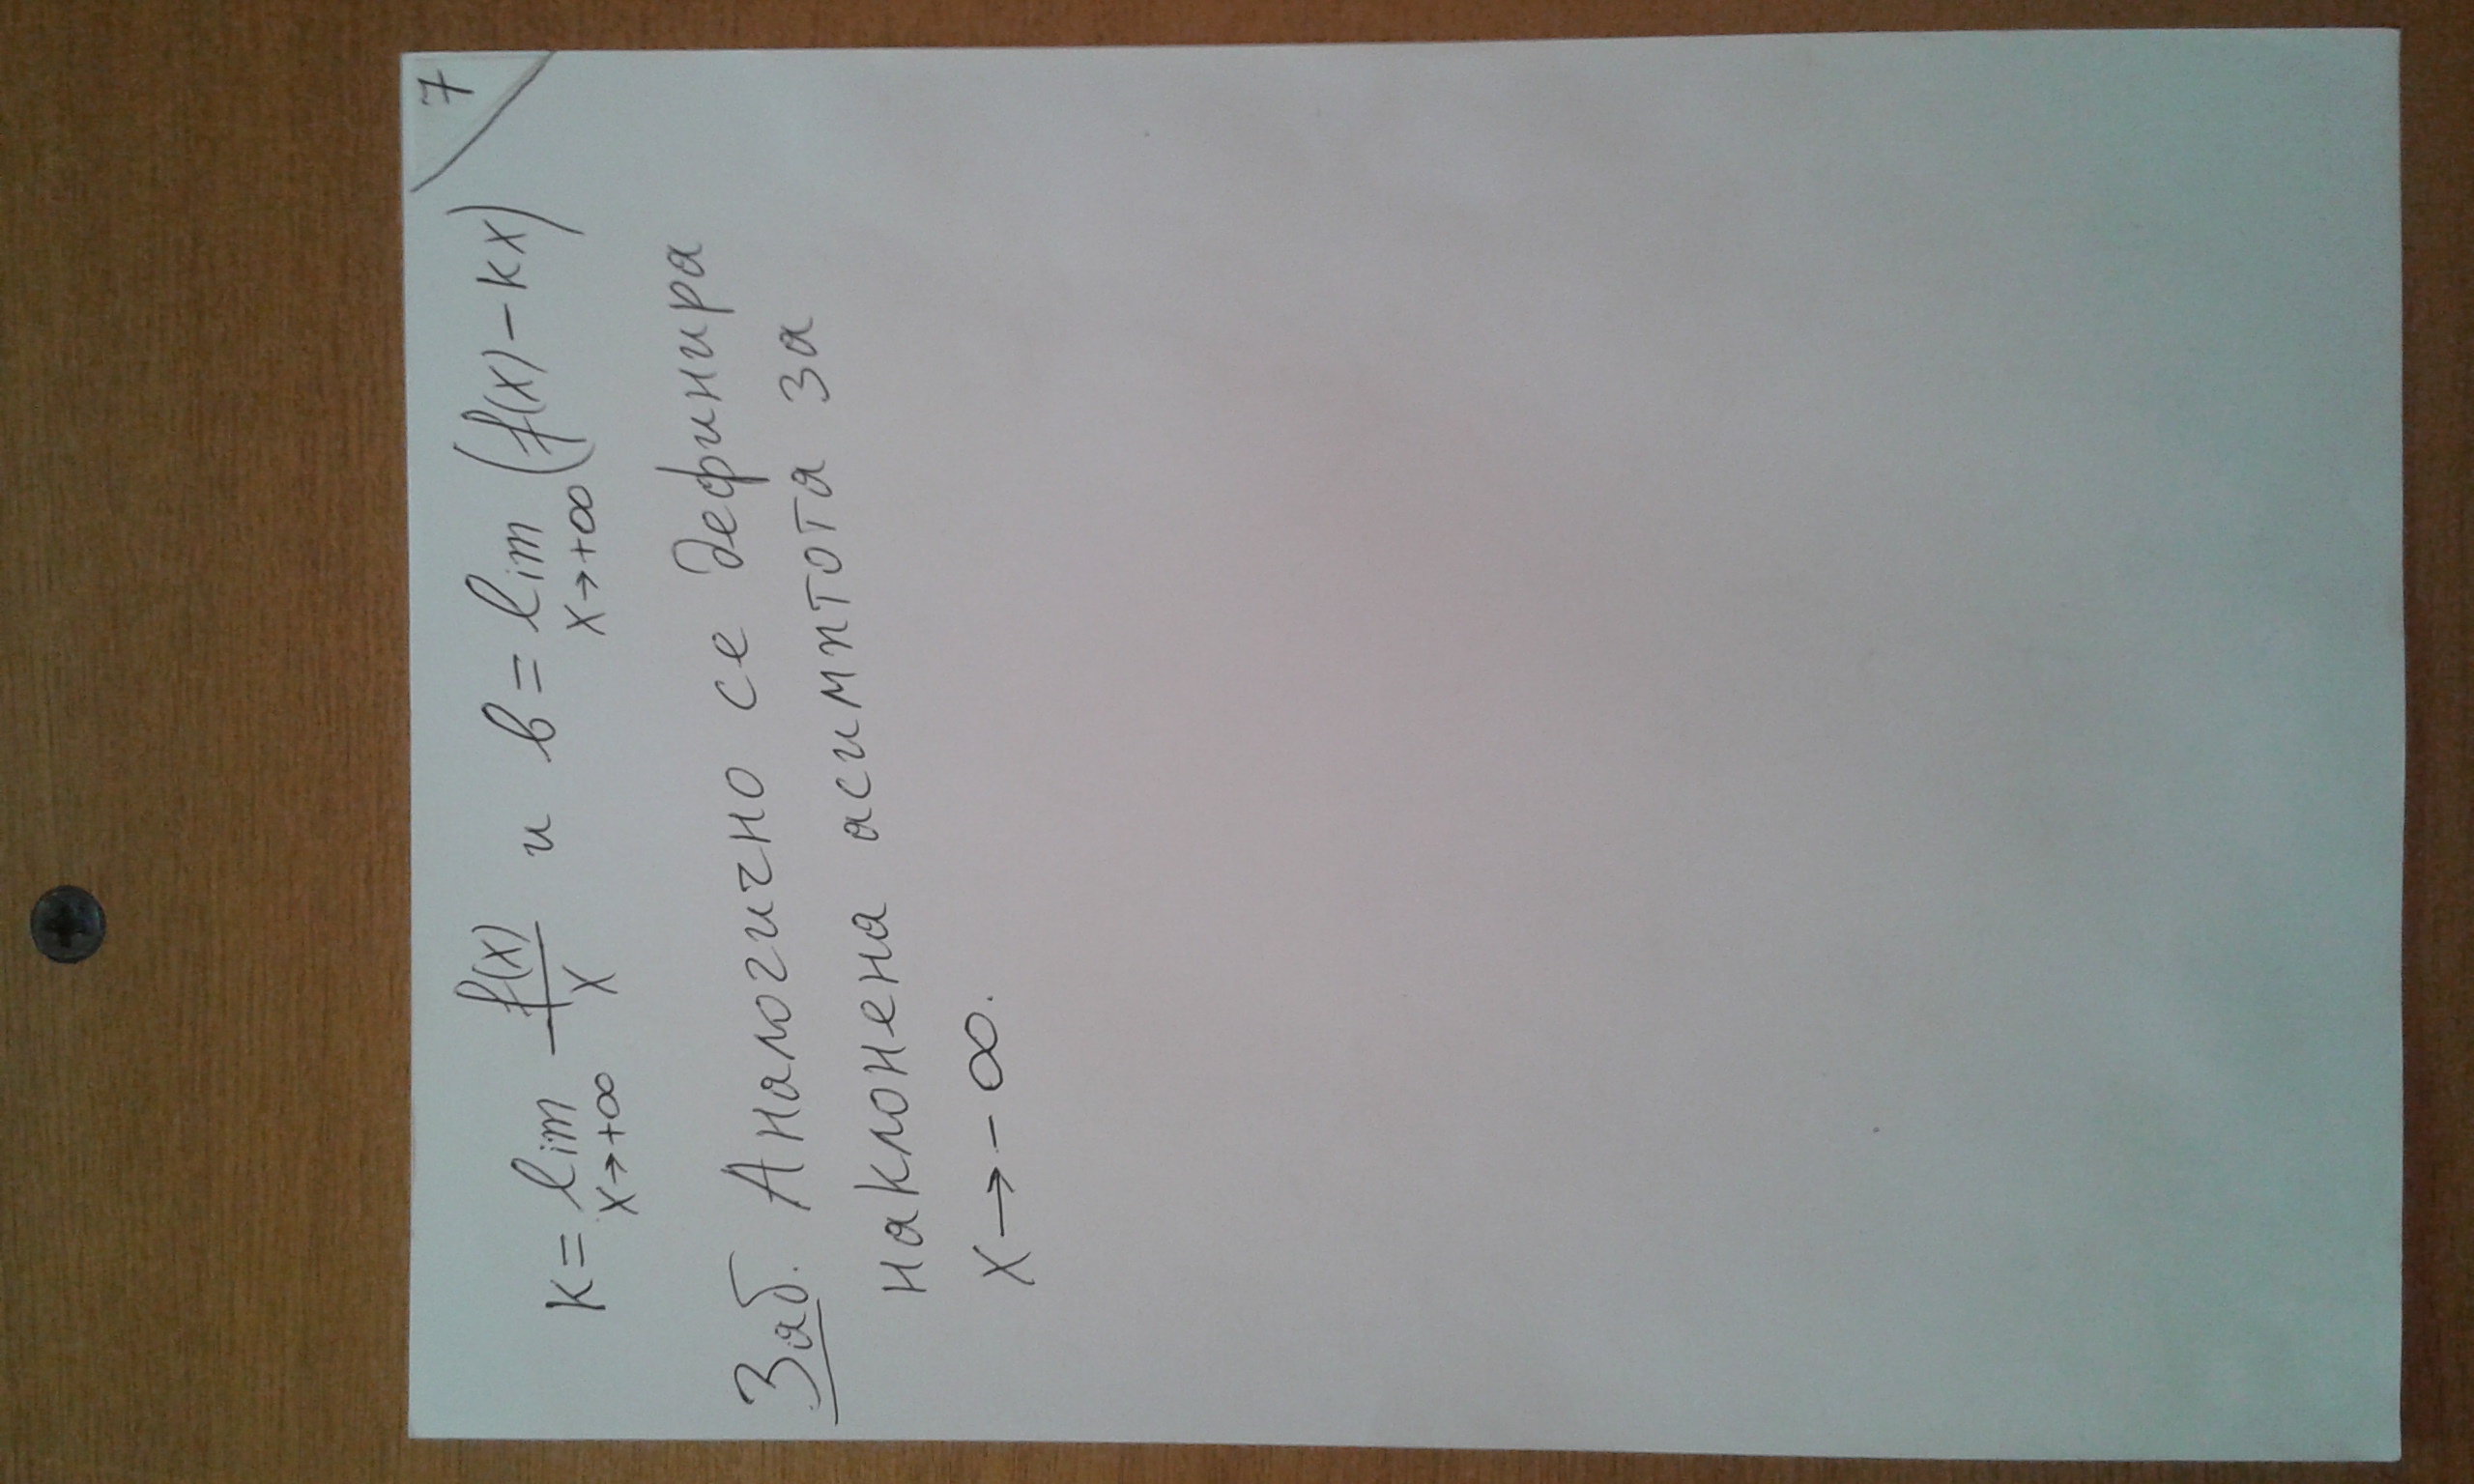 7
k = lim x→+∞ f(x)/x и b = lim x→+∞ (f(x) − kx)
Заб. Аналогично се дефинира
наклонена асимптота за
x → −∞.